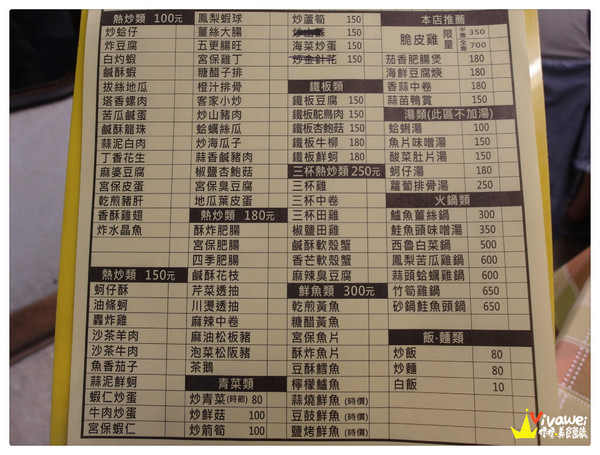 熱炒類 100元
炒蛤仔
炸豆腐
白灼蝦
鹹酥蝦
拔絲地瓜
塔香螺肉
苦瓜鹹蛋
鹹酥龍珠
蒜泥白肉
丁香花生
麻婆豆腐
宮保皮蛋
乾煎豬肝
香酥雞翅
炸水晶魚
熱炒類 150元
蚵仔酥
油條蚵
轟炸雞
沙茶羊肉
沙茶牛肉
魚香茄子
蒜泥鮮蚵
蝦仁炒蛋
牛肉炒蛋
宮保蝦仁
鳳梨蝦球
薑絲大腸
五更腸旺
宮保雞丁
糖醋子排
橙汁排骨
客家小炒
炒山豬肉
蛤蠣絲瓜
炒海瓜子
蒜香鹹豬肉
椒鹽杏鮑菇
宮保臭豆腐
地瓜葉皮蛋
熱炒類 180元
酥炸肥腸
宮保肥腸
四季肥腸
鹹酥花枝
芹菜透抽
川燙透抽
麻辣中卷
麻油松板豬
泡菜松阪豬
茶鵝
青菜類
炒青菜(時節) 80
炒鮮菇 100
炒箭筍 100
炒蘆筍 150
炒山蘇 150
海菜炒蛋 150
炒金針花 150
鐵板類
鐵板豆腐 150
鐵板鴕鳥肉 150
鐵板杏鮑菇 150
鐵板牛柳 180
鐵板鮮蚵 180
三杯熱炒類 250元
三杯雞
三杯中卷
三杯田雞
椒鹽田雞
鹹酥軟殼蟹
香芒軟殼蟹
麻辣臭豆腐
鮮魚類 300元
乾煎黃魚
糖醋黃魚
宮保魚片
酥炸魚片
豆酥鱈魚
檸檬鱸魚
蒜燒鮮魚 (時價)
豆鼓鮮魚 (時價)
鹽烤鮮魚 (時價)
本店推薦
脆皮雞 限量 半隻 350
全隻 700
茄香肥腸煲 180
海鮮豆腐羹 180
香蒜中卷 180
蒜苗鴨賞 150
湯類(此區不加湯)
蛤蜊湯 100
魚片味噌湯 150
酸菜肚片湯 150
蚵仔湯 180
蘿蔔排骨湯 250
火鍋類
鱸魚薑絲鍋 300
鮭魚頭味噌湯 350
西魯白菜鍋 500
鳳梨苦瓜雞鍋 600
蒜頭蛤蠣雞鍋 600
竹筍雞鍋 650
砂鍋鮭魚頭鍋 650
飯.麵類
炒飯 80
炒麵 80
白飯 10
Vivawei